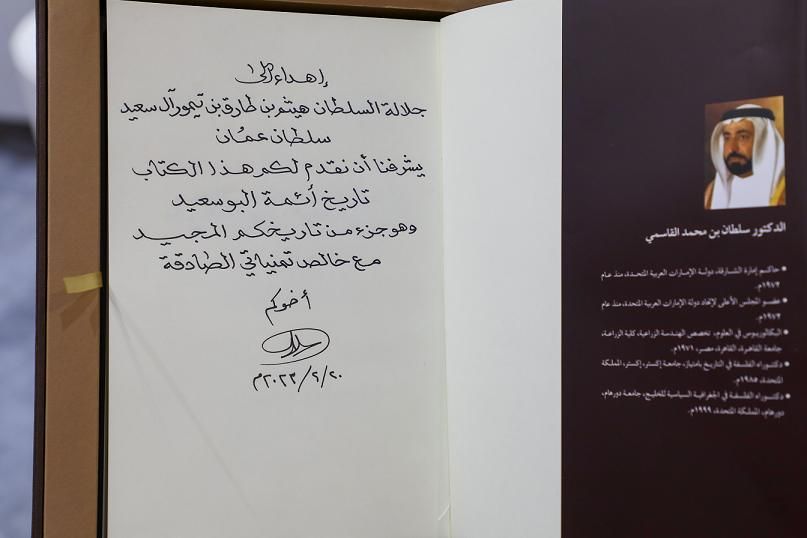 إهداء إلى
جلالة السلطان هيثم بن طارق بن تيمور آل سعيد
سلطان عمُان
يشرفنا أن نقدم لكم هذا الكتاب
تاريخ أئمة البوسعيد
وهو جزء من تاريخكم المجيد
مع خالص تمنياتي الصادقة
أخوكم
٢٠٢٣/٢/٢٠م
الدكتور سلطان بن محمد القاسمي
● حاكم إمارة الشارقة، دولة الإمارات العربية المتحدة، منذ عام
١٩٧٢م.
● عضو المجلس الأعلى لإتحاد دولة الإمارات العربية المتحدة، منذ عام
١٩٧٢م.
● البكالوريوس في العلوم، تخصص الهندسة الزراعية، كلية الزراعة،
جامعة القاهرة، القاهرة، مصر، ١٩٧١م.
● دكتوراه الفلسفة في التاريخ بامتياز، جامعة إكستر، إكستر، المملكة
المتحدة، ١٩٨٥م.
● دكتوراه الفلسفة في الجغرافية السياسية للخليج، جامعة دورهام،
دورهام، المملكة المتحدة، ١٩٩٩م.